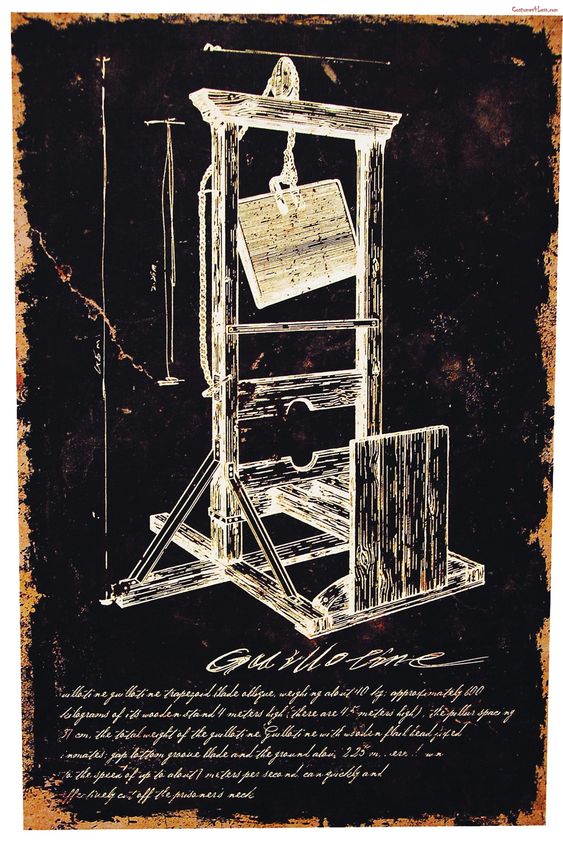 Costumes4Less.com
2.25m
Guillotine
uillotine guillotine trapezoid blade oblique, weighing about 40 kg: approximately 600
kilograms of its wooden stand 4 meters high (there are 4.5 meters high), the pillar spacing
37 cm, the total weight of the guillotine Guillotine with wooden flail head, fixed
inmates: gap bottom groove blade and the ground about 2.25 m. ..ere !! wn
o the speed of up to about 7 meters per second can quickly and
ffectively cut off the prisoner's neck